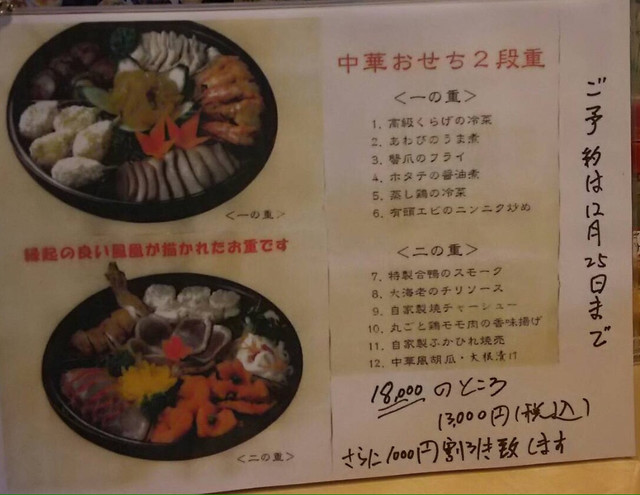 中華おせち2段重
<一の重>
1. 高級くらげの冷菜
2. あわびのうま煮
3. 蟹爪のフライ
4. ホタテの醤油煮
5. 蒸し鶏の冷菜
6. 有頭エビのニンニク炒め
<一の重>
縁起の良い鳳凰が描かれたお重です
<二の重>
7. 特製合鴨のスモーク
8. 大海老のチリソース
9. 自家製焼チャーシュー
10. 丸ごと鶏モモ肉の香味揚げ
11. 自家製ふかひれ焼売
12. 中華風胡瓜・大根漬け
<二の重>
18,000のところ
13,000円(税込)
さらに1,000円割引き致します
ご予約は12月25日まで